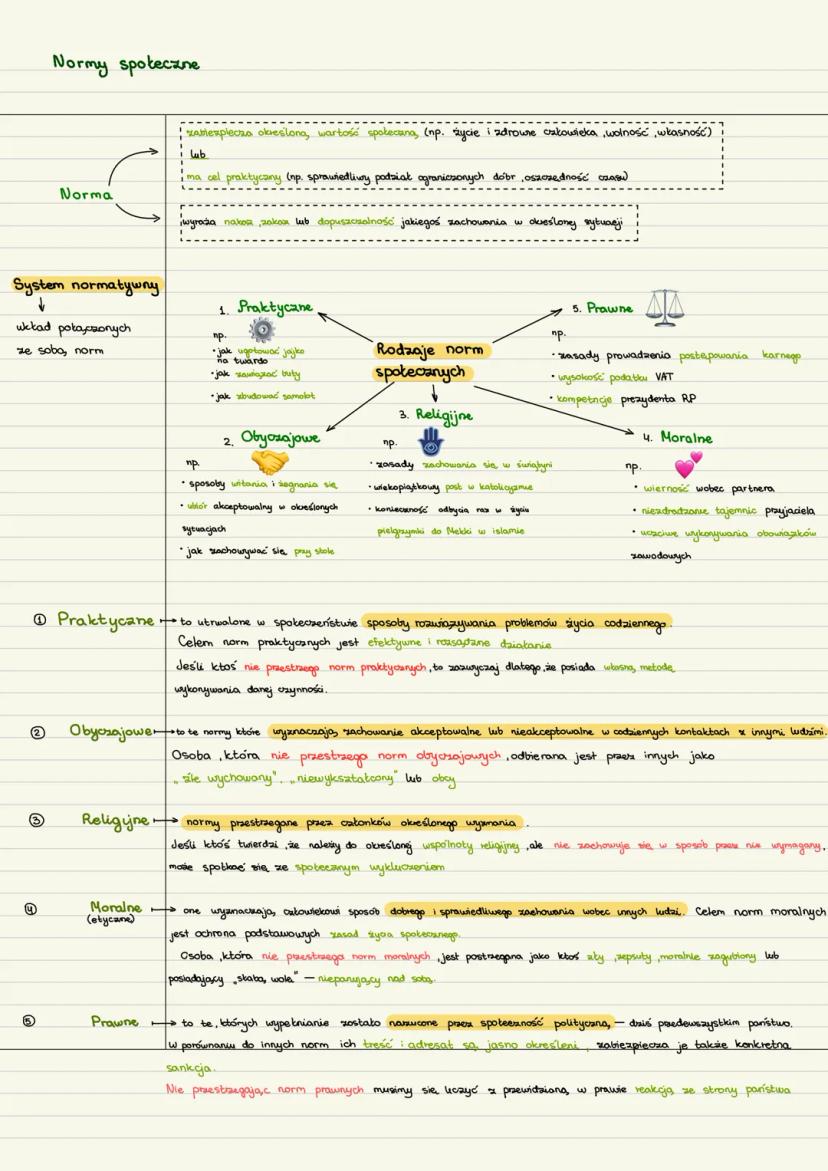 Normy społeczne
zabezpiecza określoną wartość społeczną (np. życie i zdrowie człowieka ,wolność ,własność)
lub
ma cel praktyczny (np. sprawiedliwy podział ograniczonych dóbr ,oszczędność czasu)
Norma
wyraża nakaz ,zakaz lub dopuszczalność jakiegoś zachowania w określonej sytuacji
System normatywny
układ połączonych
ze sobą norm
Rodzaje norm
społecznych
1. Praktyczne
np.
• jak ugotować jajko
na twardo
• jak zawiązać buty
• jak zbudować samolot
5. Prawne
np.
• zasady prowadzenia postępowania karnego
• wysokość podatku VAT
• kompetencje prezydenta RP
2. Obyczajowe
np.
• sposoby witania i żegnania się
• ubiór akceptowalny w określonych
sytuacjach
• jak zachowywać się przy stole
3. Religijne
np.
• zasady zachowania się w świątyni
• wielkopiątkowy post w katolicyzmie
• konieczność odbycia raz w życiu
pielgrzymki do Mekki w islamie
4. Moralne
np.
• wierność wobec partnera
• niezdradzanie tajemnic przyjaciela
• uczciwe wykonywania obowiązków
zawodowych
① Praktyczne → to utrwalone w społeczeństwie sposoby rozwiązywania problemów życia codziennego.
Celem norm praktycznych jest efektywne i rozsądne działanie
Jeśli ktoś nie przestrzega norm praktycznych ,to zazwyczaj dlatego ,że posiada własną metodę
wykonywania danej czynności.
② Obyczajowe → to te normy które wyznaczają zachowanie akceptowalne lub nieakceptowalne w codziennych kontaktach z innymi ludźmi.
Osoba ,która nie przestrzega norm obyczajowych ,odbierana jest przez innych jako
„źle wychowany", „niewykształcony" lub obcy
③ Religijne → normy przestrzegane przez członków określonego wyznania .
Jeśli ktoś twierdzi ,że należy do określonej wspólnoty religijnej ,ale nie zachowuje się w sposób przez nie wymagany,
może spotkać się ze społecznym wykluczeniem
④ Moralne → one wyznaczają człowiekowi sposób dobrego i sprawiedliwego zachowania wobec innych ludzi. Celem norm moralnych
(etyczne)
jest ochrona podstawowych zasad życia społecznego.
Osoba ,która nie przestrzega norm moralnych ,jest postrzegana jako ktoś zły ,zepsuty ,moralnie zagubiony lub
posiadający „słabą wolę" — niepanujący nad sobą.
⑤ Prawne → to te, których wypełnianie zostało narzucone przez społeczność polityczną, — dziś przedewszystkim państwo.
W porównaniu do innych norm ich treść i adresat są jasno określeni , zabezpiecza je także konkretna
sankcja.
Nie przestrzegając norm prawnych musimy się liczyć z przewidzianą w prawie reakcją ze strony państwa